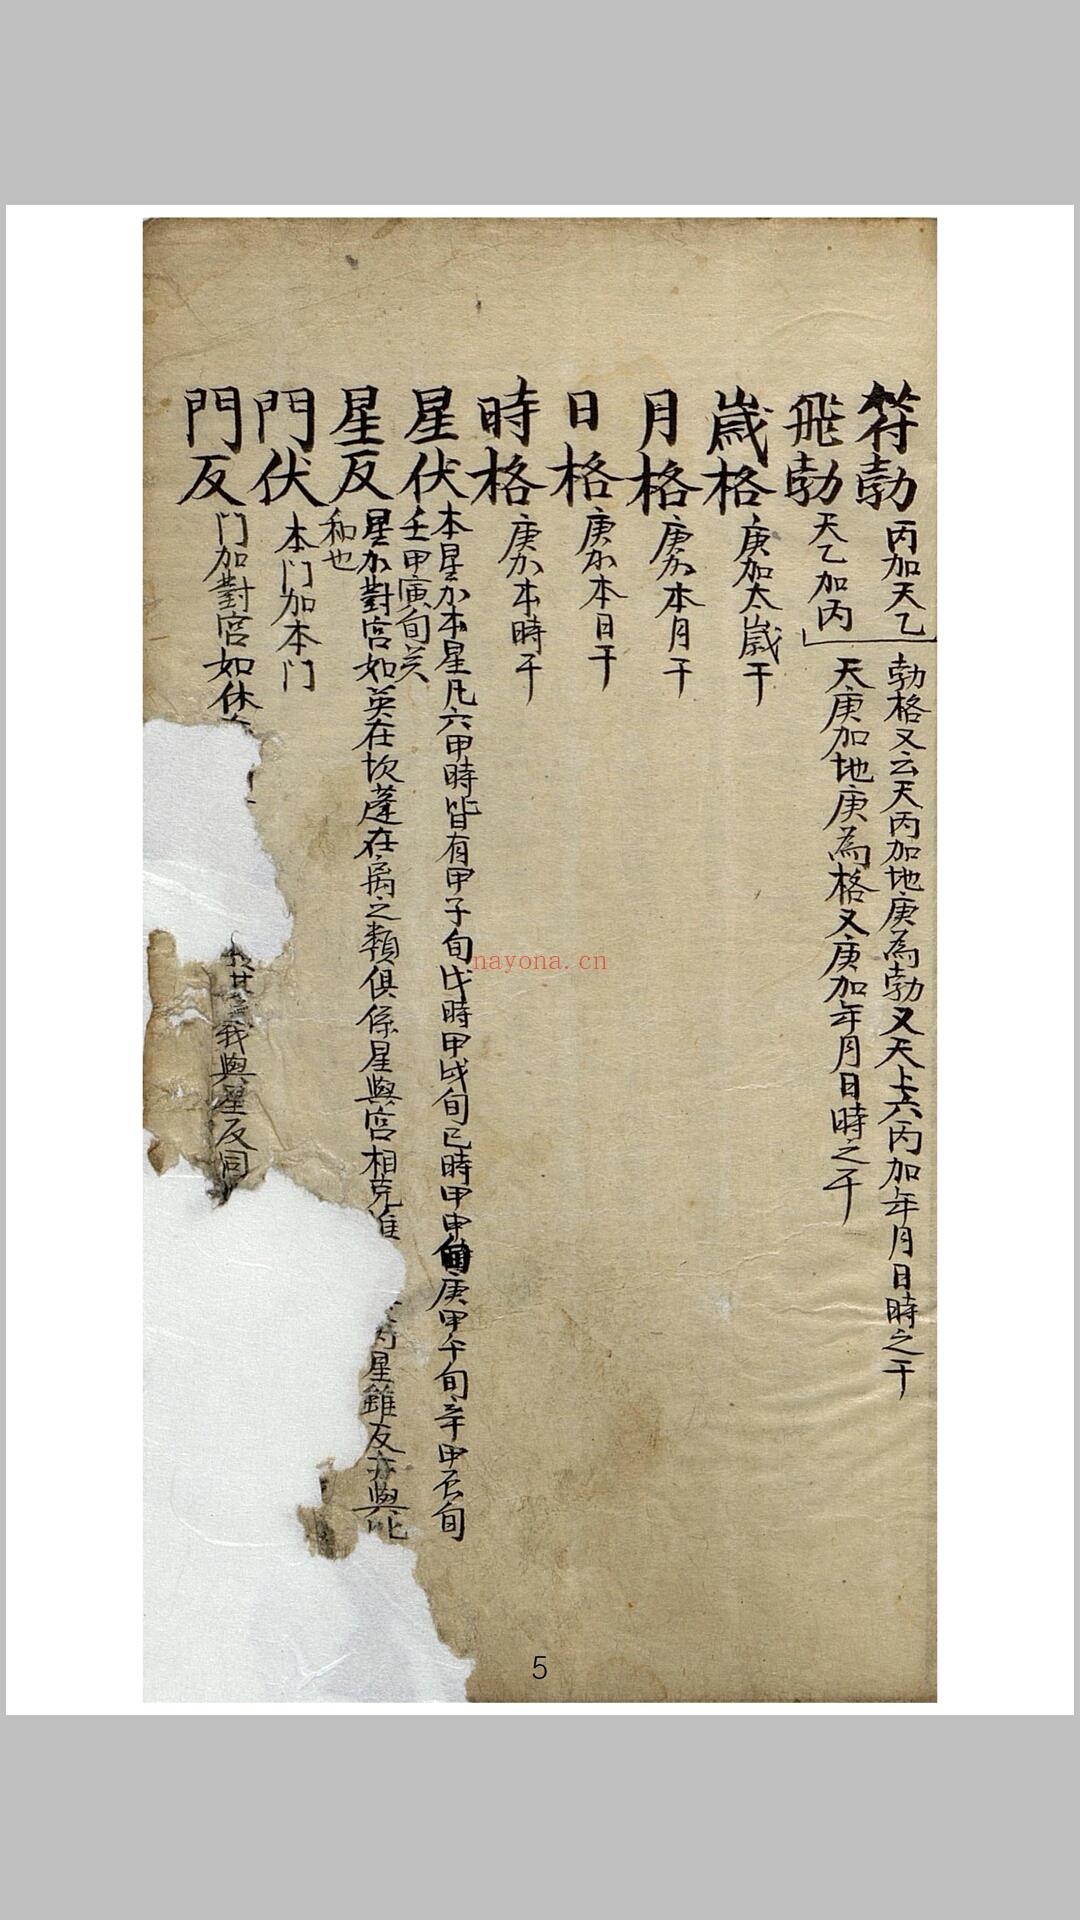 符勃 丙加天乙 勃格又云天丙加地庚為勃又天上六丙加年月日時之干
飛勃 天乙加丙 天庚加地庚為格又庚加年月日時之干
歲格 庚加太歲干
月格 庚加本月干
日格 庚加本日干
時格 庚加本時干
星伏 本星加本星凡六甲時皆有甲子旬戊時甲戌旬已時甲申旬庚甲午旬辛甲辰旬
壬甲寅旬癸
星反 星加對宮如英在坎蓬在离之類俱係星與宮相克 星雖反亦與
和也
門伏 本門加本門
門反 門加對宮如休 其 我與星反同
nayona.cn
5